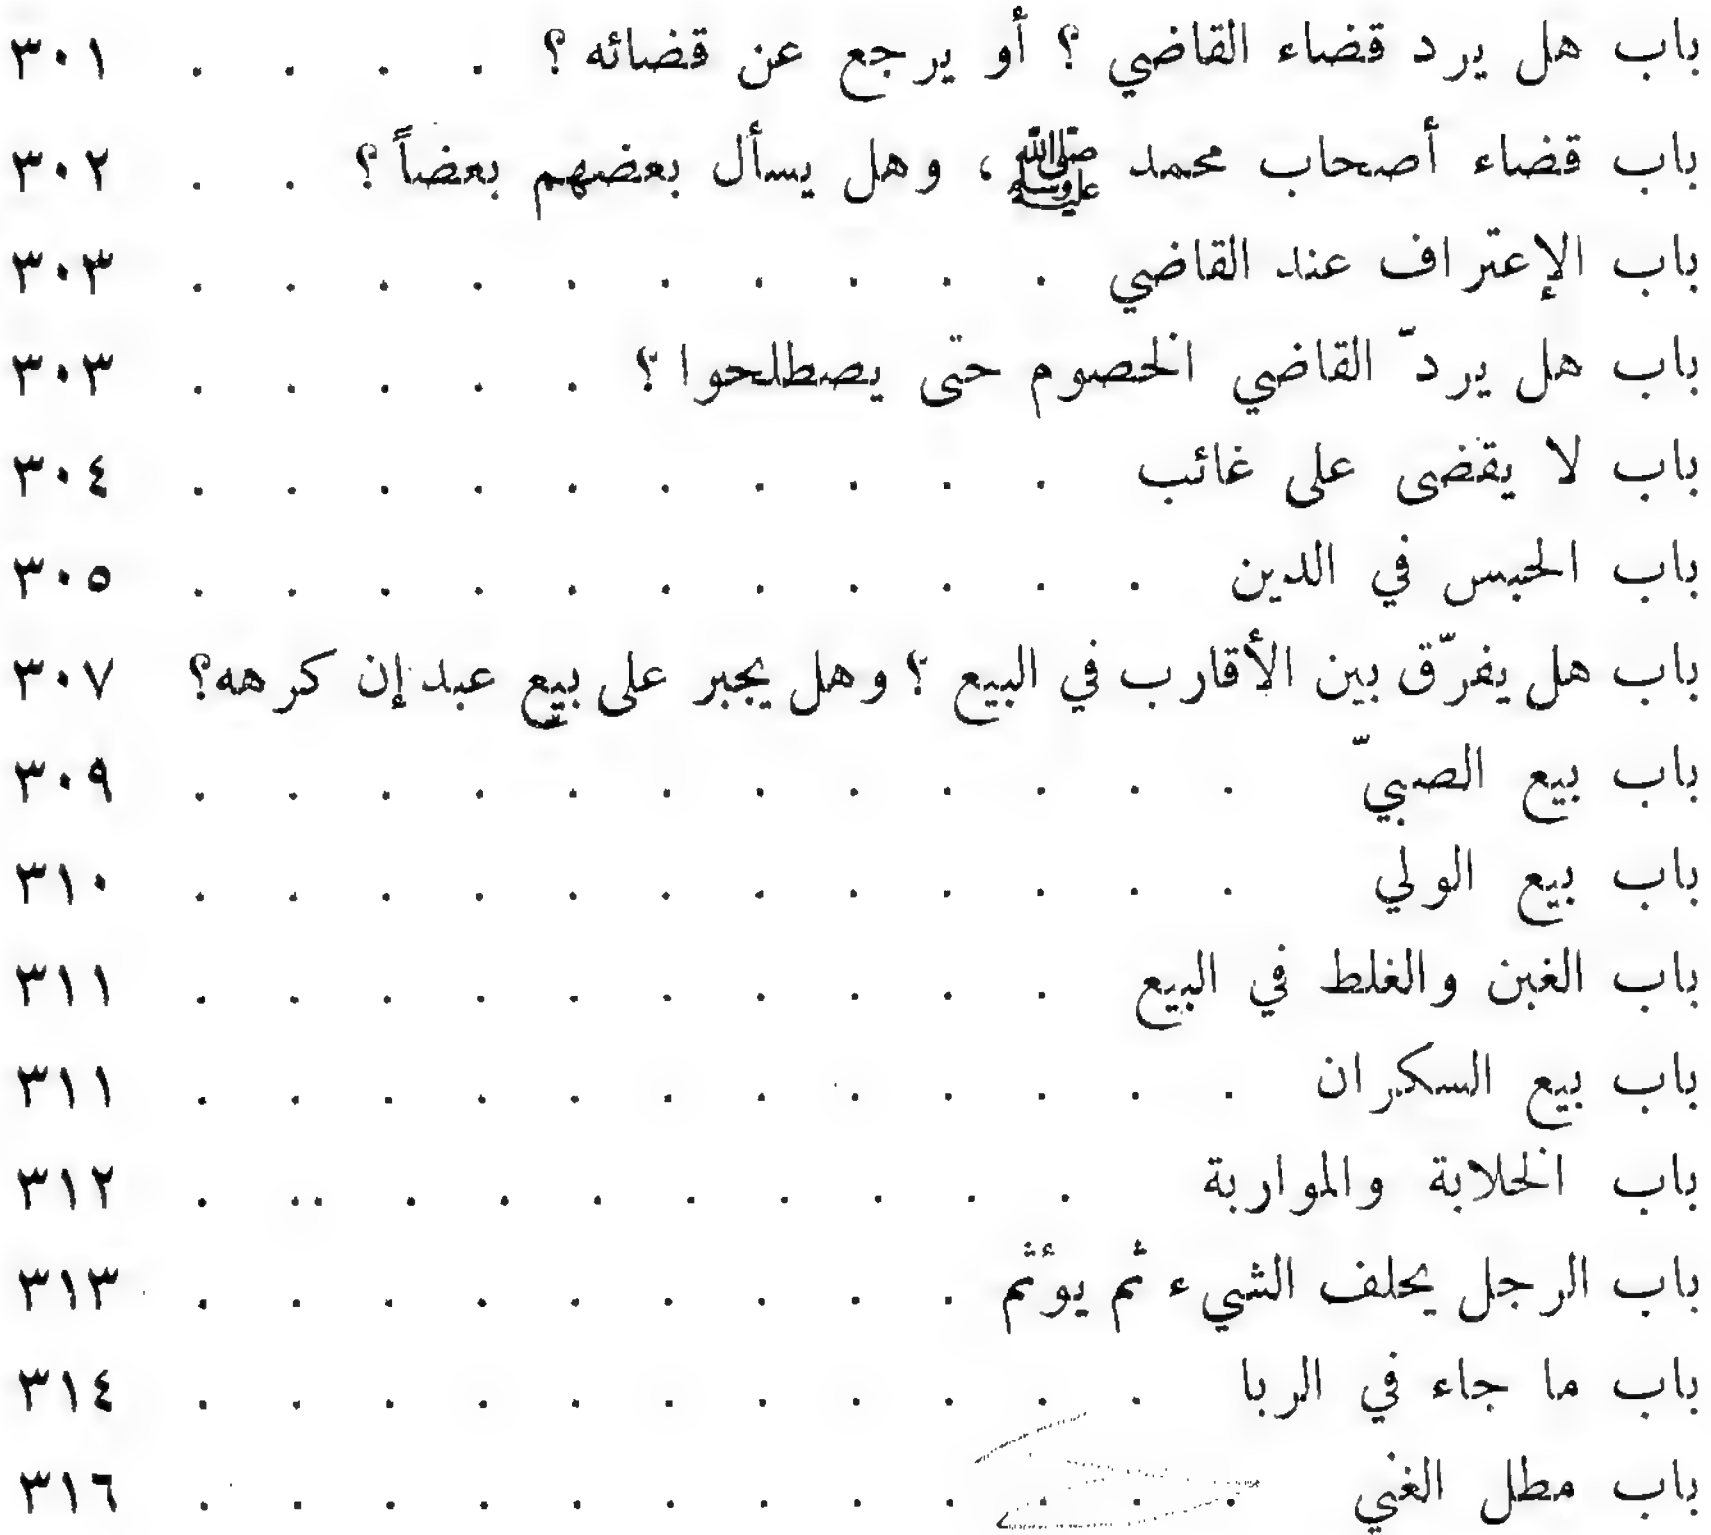 باب هل يرد قضاء القاضي ؟ أو يرجع عن قضائه ؟ . . . . ٣٠١
باب قضاء أصحاب محمد ﷺ ، وهل يسأل بعضهم بعضاً ؟ . . ٣٠٢
باب الإعتراف عند القاضي . . . . . . . . . . ٣٠٣
باب هل يردّ القاضي الخصوم حتى يصطلحوا ؟ . . . . . ٣٠٣
باب لا يقضى على غائب . . . . . . . . . . ٣٠٤
باب الحبس في الدين . . . . . . . . . . . ٣٠٥
باب هل يفرّق بين الأقارب في البيع ؟ وهل يجبر على بيع عبد إن كرهه؟ ٣٠٧
باب بيع الصبيّ . . . . . . . . . . . . ٣٠٩
باب بيع الولي . . . . . . . . . . . . ٣١٠
باب الغبن والغلط في البيع . . . . . . . . . . ٣١١
باب بيع السكران . . . . . . . . . . . . ٣١١
باب الخلابة والمواربة . . . . . . . . .. . ٣١٢
باب الرجل يحلف الشيء ثم يؤثم . . . . . . . . . ٣١٣
باب ما جاء في الربا . . . . . . . . . . . ٣١٤
باب مطل الغني . . . . . . . . . . . . ٣١٦